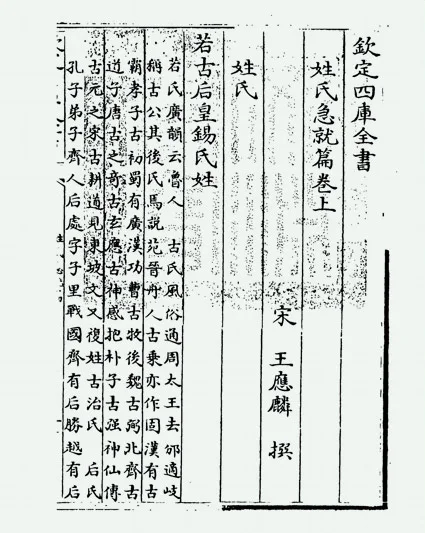 欽定四庫全書
姓氏急就篇卷上
宋 王應麟 撰
姓氏
若古后皇錫氏姓
若氏廣韻云魯人 古氏風俗通周太王去邠適岐
稱古公其後氏馬說苑晉舟人古乘亦作固漢有古
霸孝子古初蜀有廣漢功曹古牧後魏古弼北齊古
道子唐古之奇古玄應古神感抱朴子古强神仙傳
古元之宋古耕道見東坡文又複姓古治氏 后氏
孔子弟子齊人后處字子里戰國齊有后勝越有后